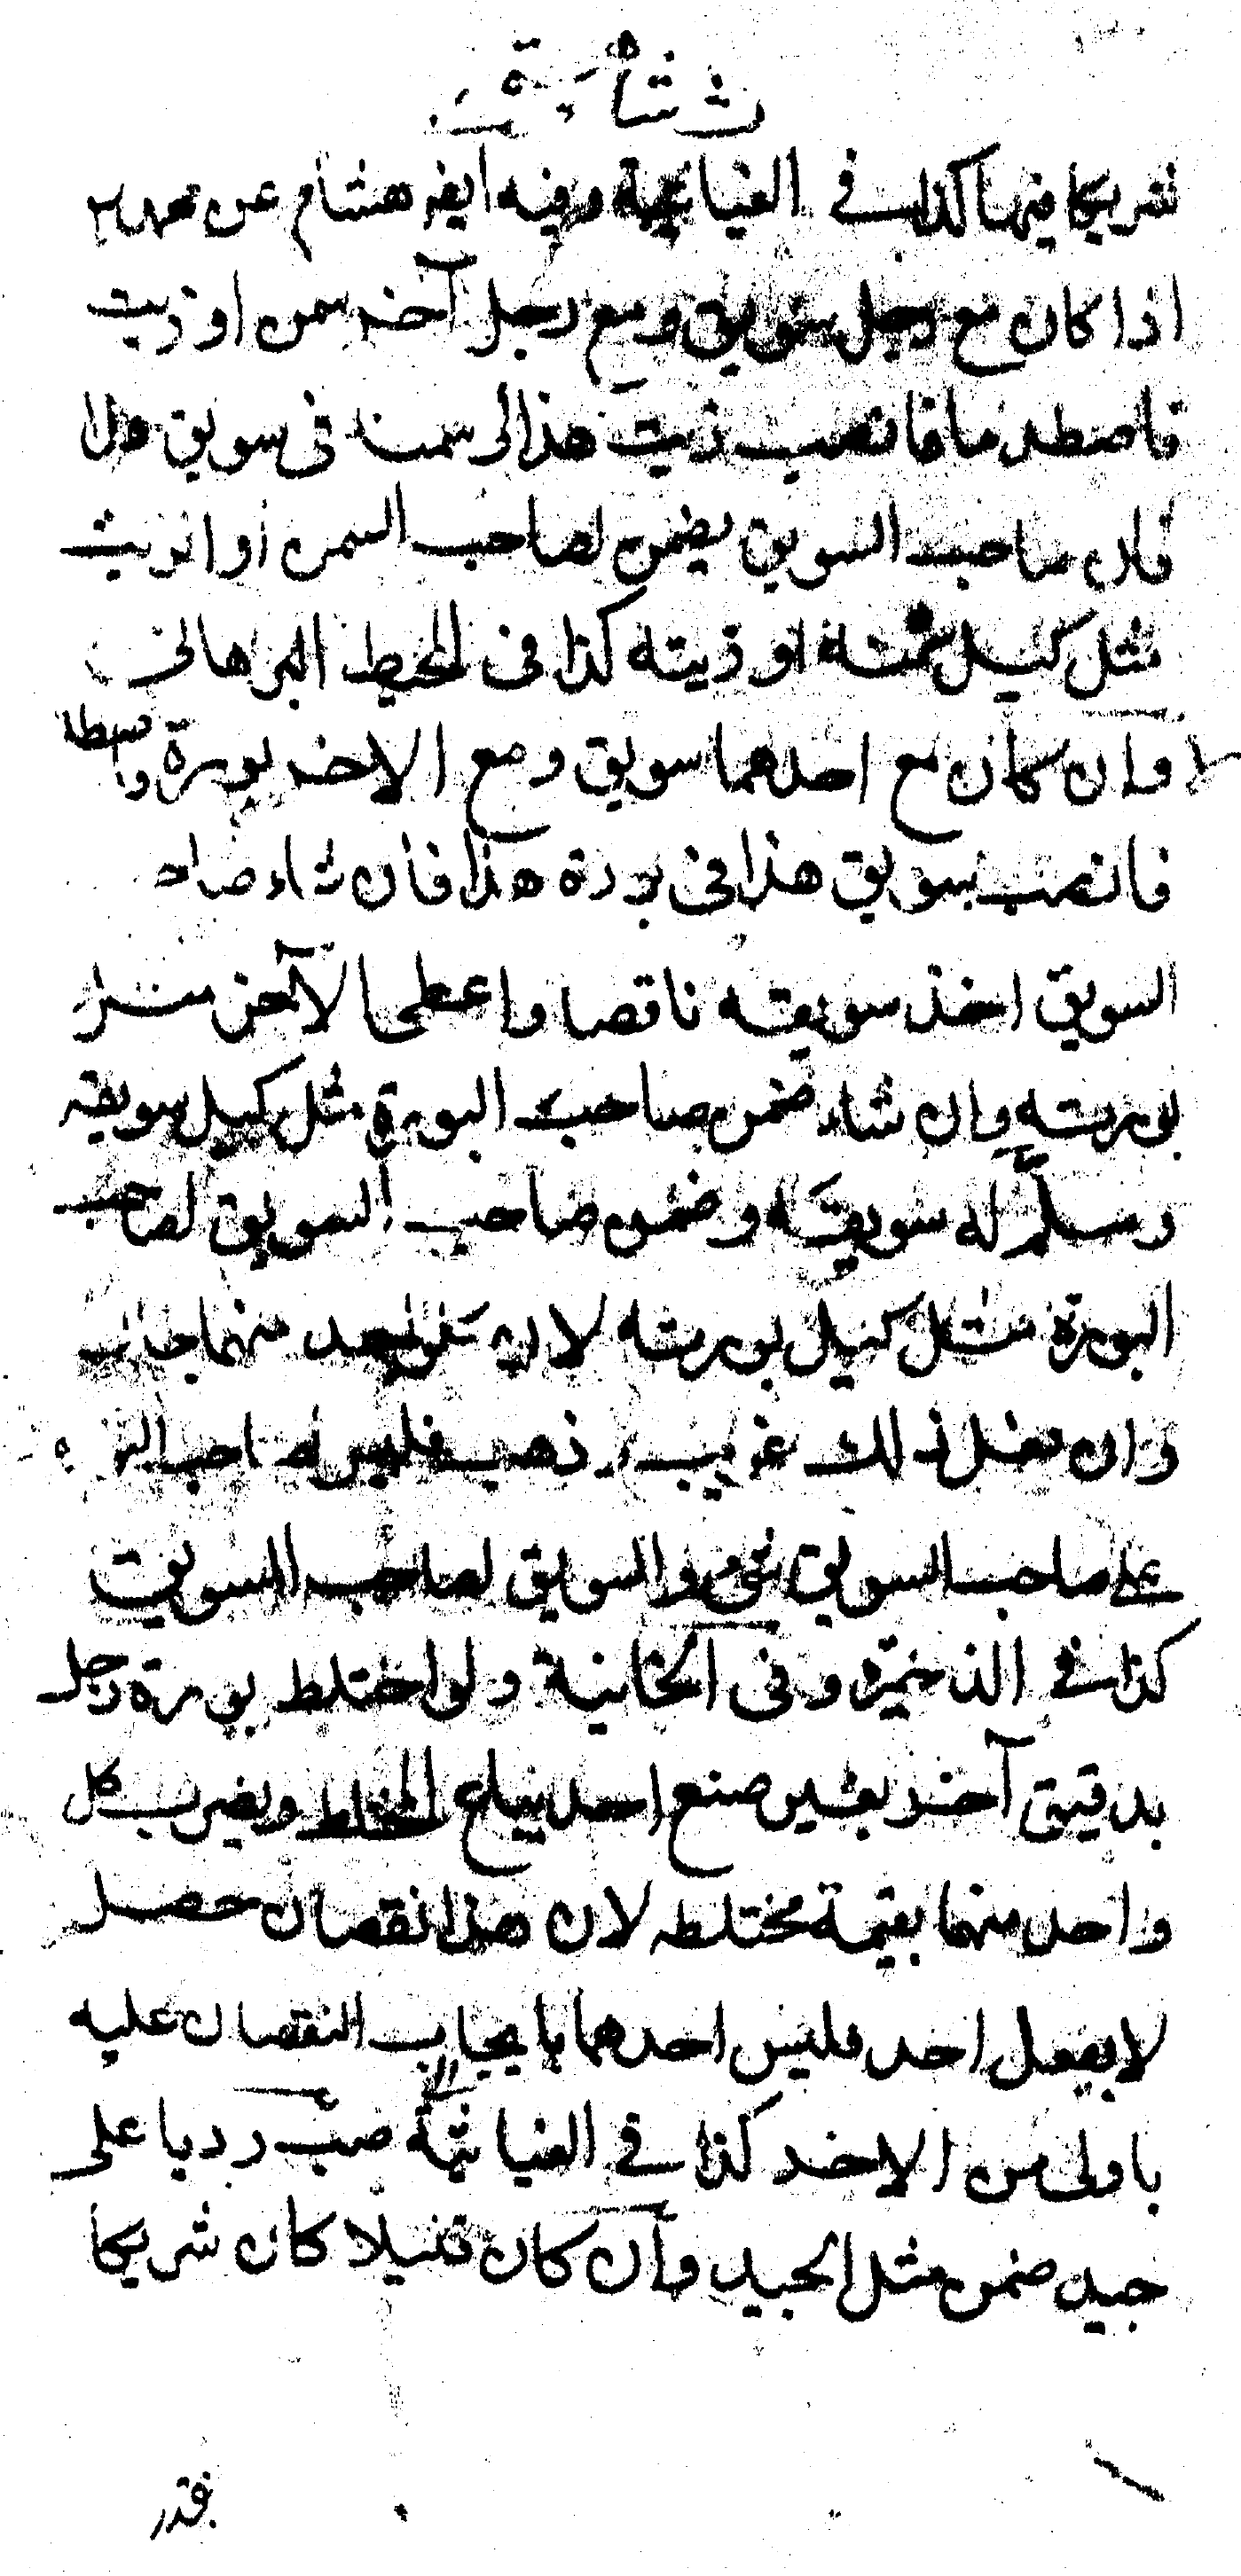 شريكا فيها كذا في الغياثية وفيه ايضر هشام عن محمد
اذا كان مع رجل سويق ومع رجل آخر سمن او زيت
فاصطدما فانصب زيت هذا او سمنه في سويق هذا
فان صاحب السويق يضمن لصاحب السمن أو الزيت
مثل كيل سمنه او زيته كذا في المحيط البرهاني
وان كان مع احدهما سويق ومع الاخر بورة
فانصب سويق هذا في بورة هذا فان شاء صاحب
السويق اخذ سويقه ناقصا واعطى الآخر مثل
بورته وان شاء ضمن صاحب البورة مثل كيل سويقه
وسلم له سويقه وضمن صاحب السويق لصاحب
البورة مثل كيل بورته لان كل واحد منهما جان
وان فعل ذلك غريب وذهب فليس لصاحب
على صاحب السويق شئ والسويق لصاحب السويق
كذا في الذخيرة وفي الخانية ولو اختلط بورة رجل
بدقيق آخر بغير صنع احد يباع المختلط ويضرب كل
واحد منهما بقيمة مختلطه لان هذا نقصان حصل
لا بفعل احد فليس احدهما بايجاب النقصان عليه
باولى من الاخر كذا في الغياثية صب رديا على
جيد ضمن مثل الجيد وان كان قليلا كان شريكا
بقدر